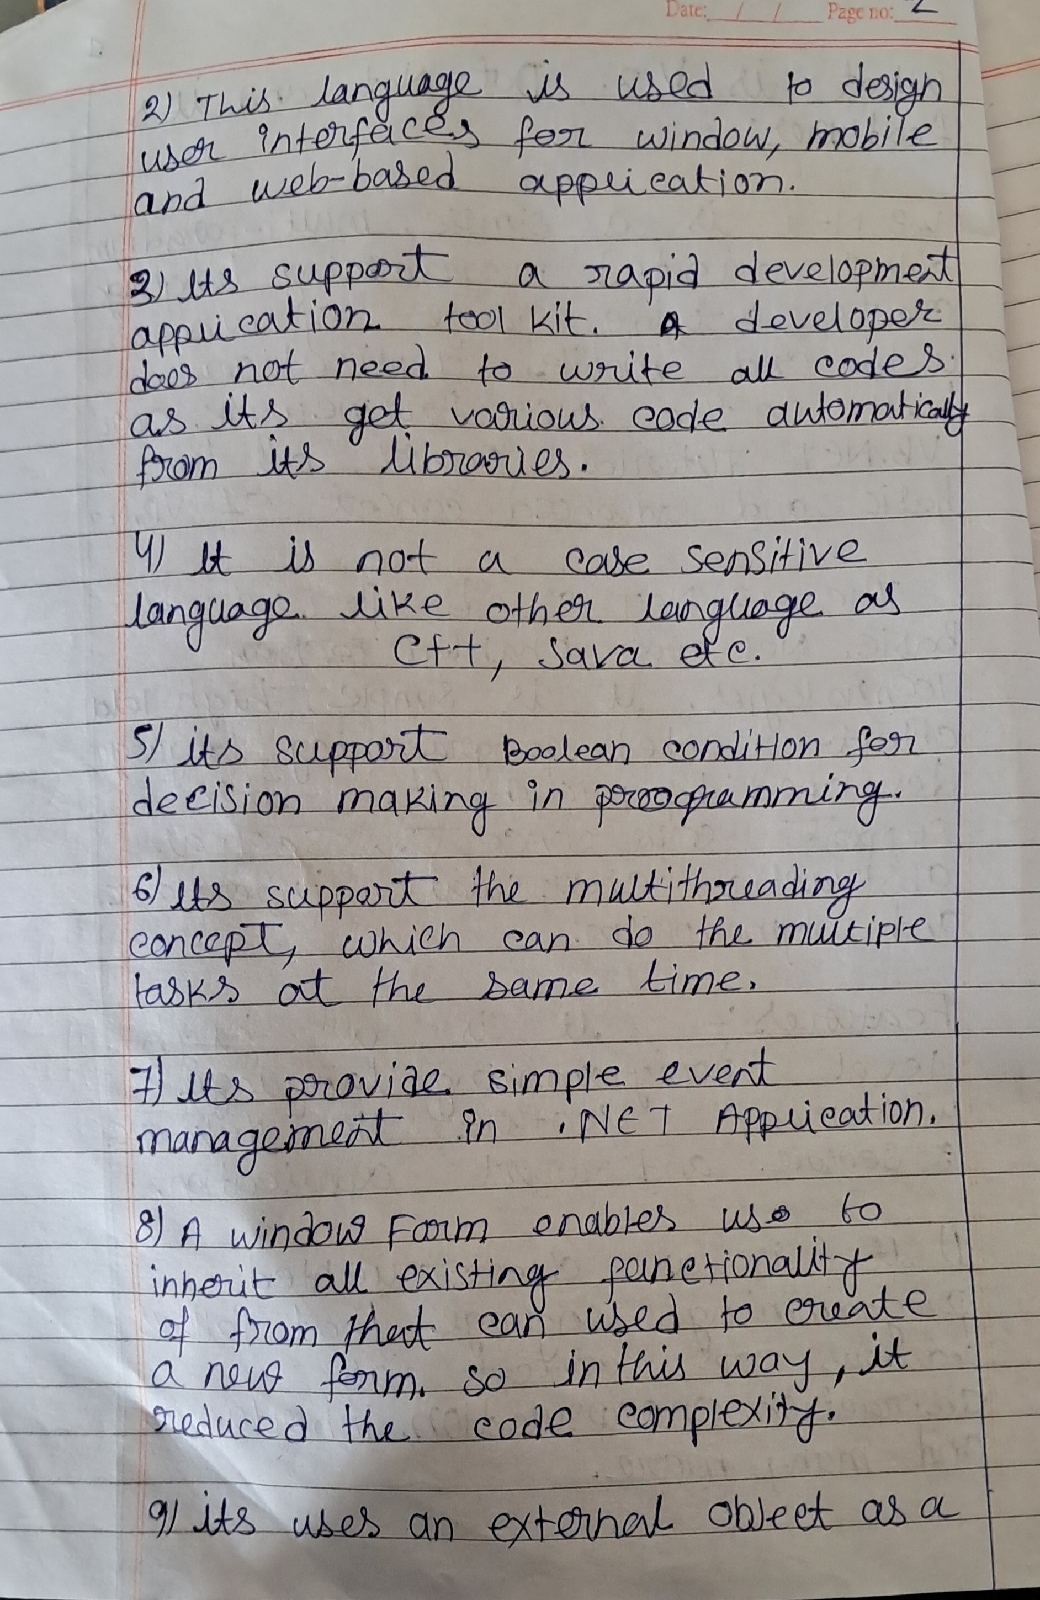 Date: / / Page no: 2
2) This language is used to design
user interfaces for window, mobile
and web-based application.
3) Its support a rapid development
application tool kit. A developer
does not need to write all codes
as its get various code automatically
from its libraries.
4) It is not a case sensitive
language like other language as
C++, Java etc.
5) its support Boolean condition for
decision making in programming.
6) Its support the multithreading
concept, which can do the multiple
tasks at the same time.
7) Its provide simple event
management in .NET Application.
8) A window Form enables us to
inherit all existing functionality
of from that can used to create
a new form. so in this way, it
reduced the code complexity.
9) its uses an external object as a